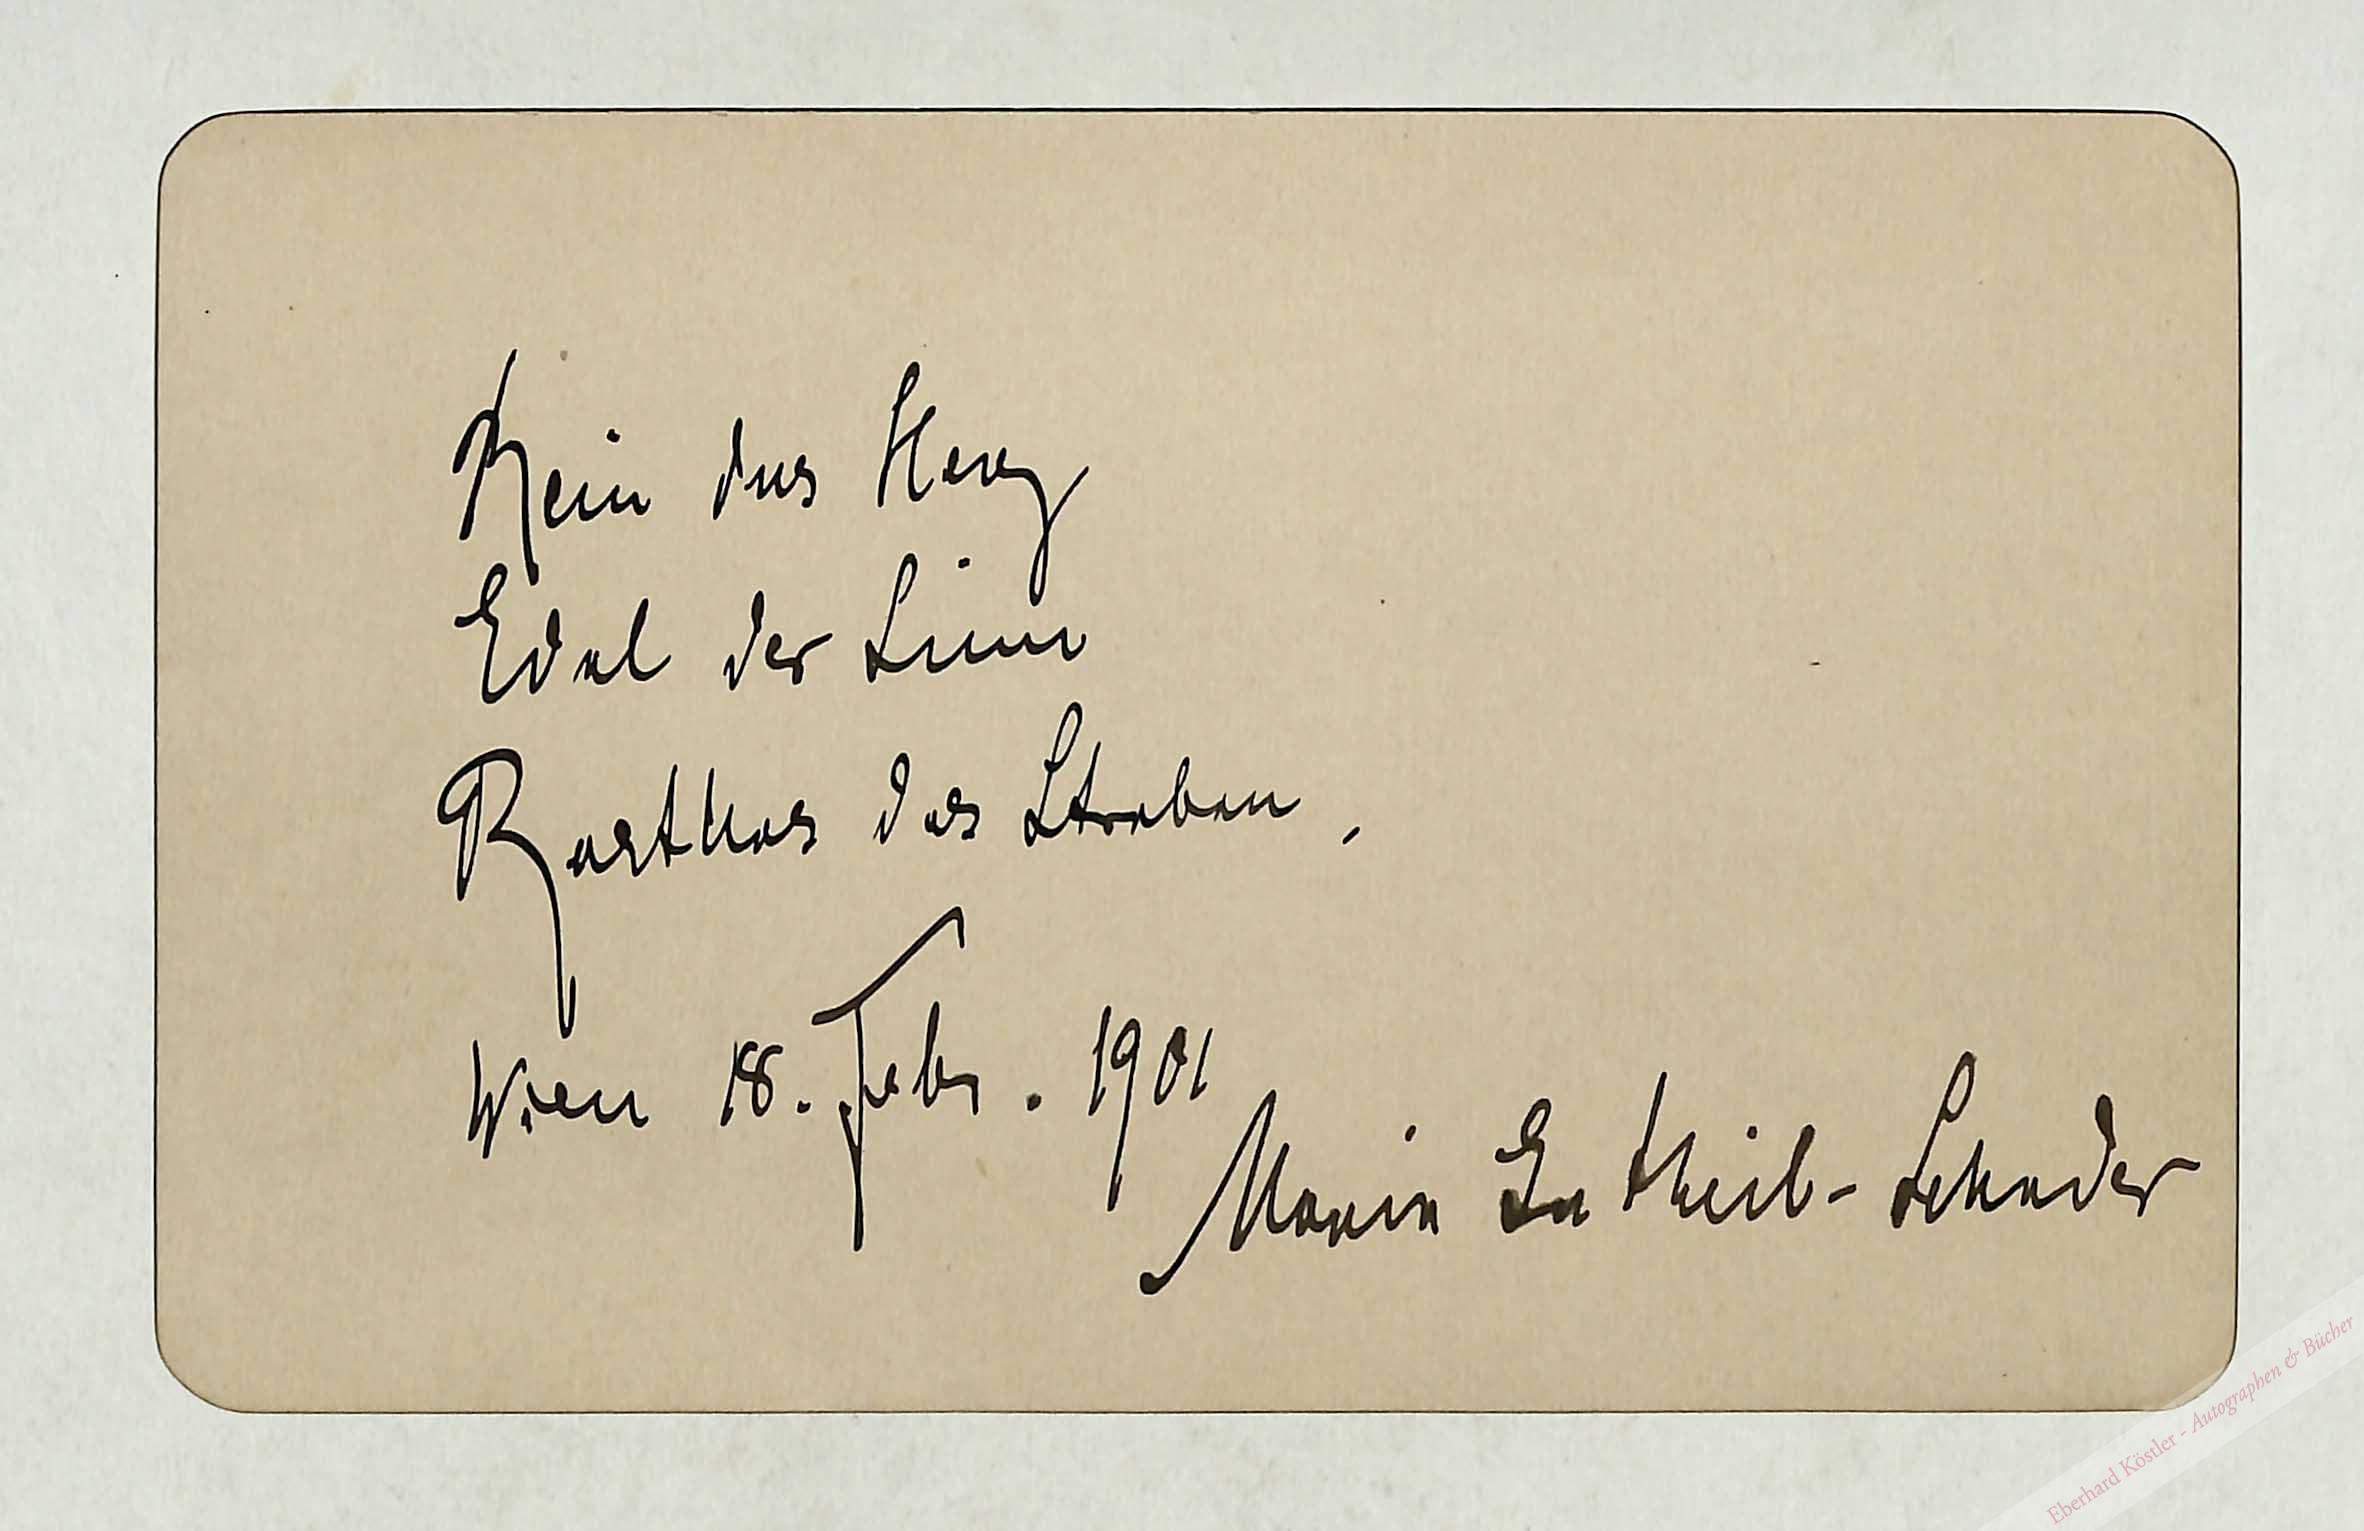 Rein das Herz
Edel der Sinn
Rastlos das Streben.
Wien 18. Febr. 1901
Marie Gutheil-Schoder
Eberhard Köstler - Autographen & Bücher